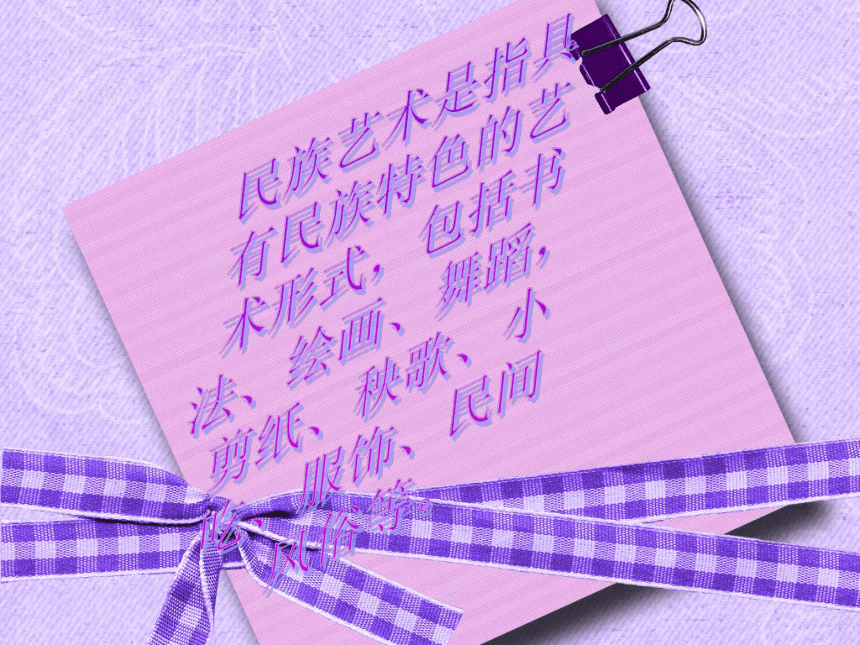 民族艺术是指具
有民族特色的艺
术形式，包括书
法、绘画、舞蹈，
剪纸、秧歌、小
吃、服饰、民间
风俗等。